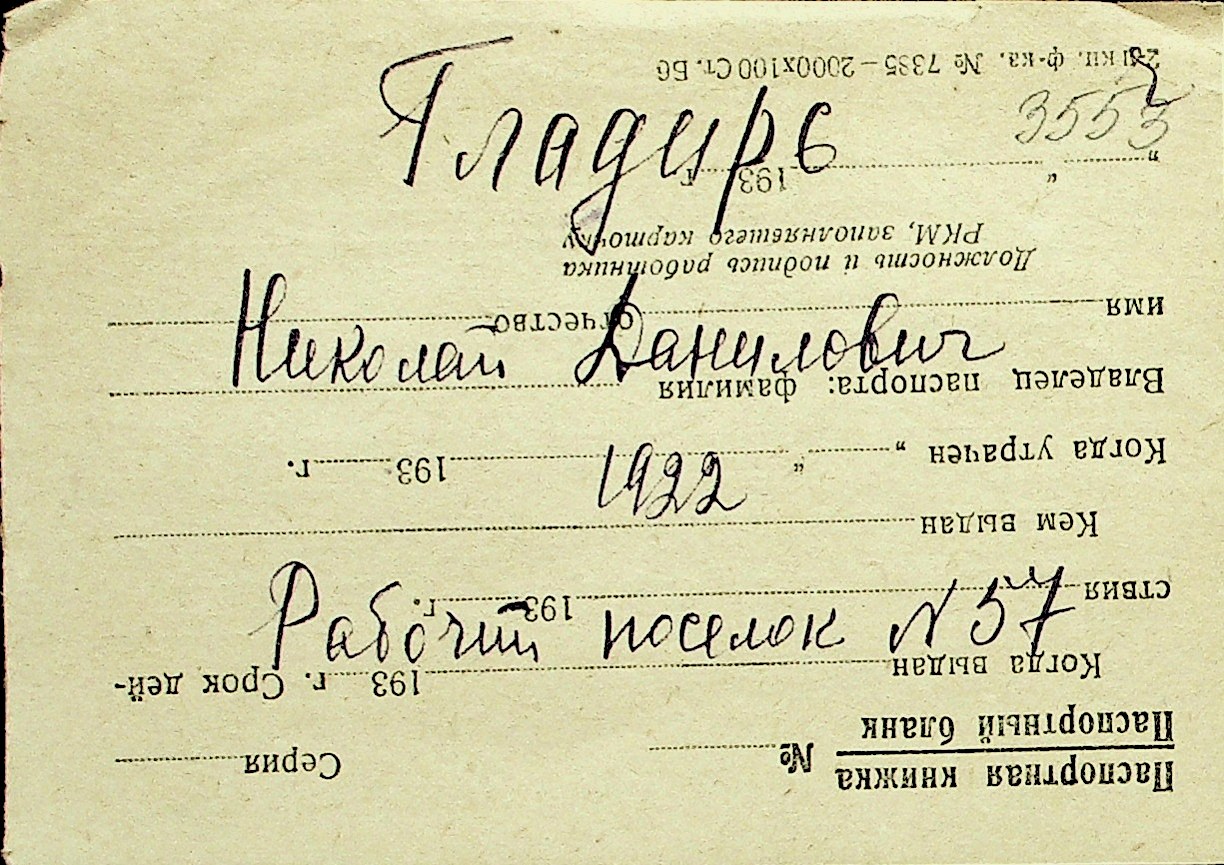 3553
Гладирь
Николай Данилович
1922
Рабочий поселок № 57
Паспортная книжка
Паспортный бланк
№ Серия
Когда выдан 193 г. Срок дей-
ствия 193 г.
Кем выдан
Когда утрачен „ “ 193 г.
Владелец паспорта: фамилия
имя отчество
Должность и подпись работника
РКМ, заполнявшего карточку
„ “ 193 г.
ф-ка. № 7385—2000х100 Ст. Бб